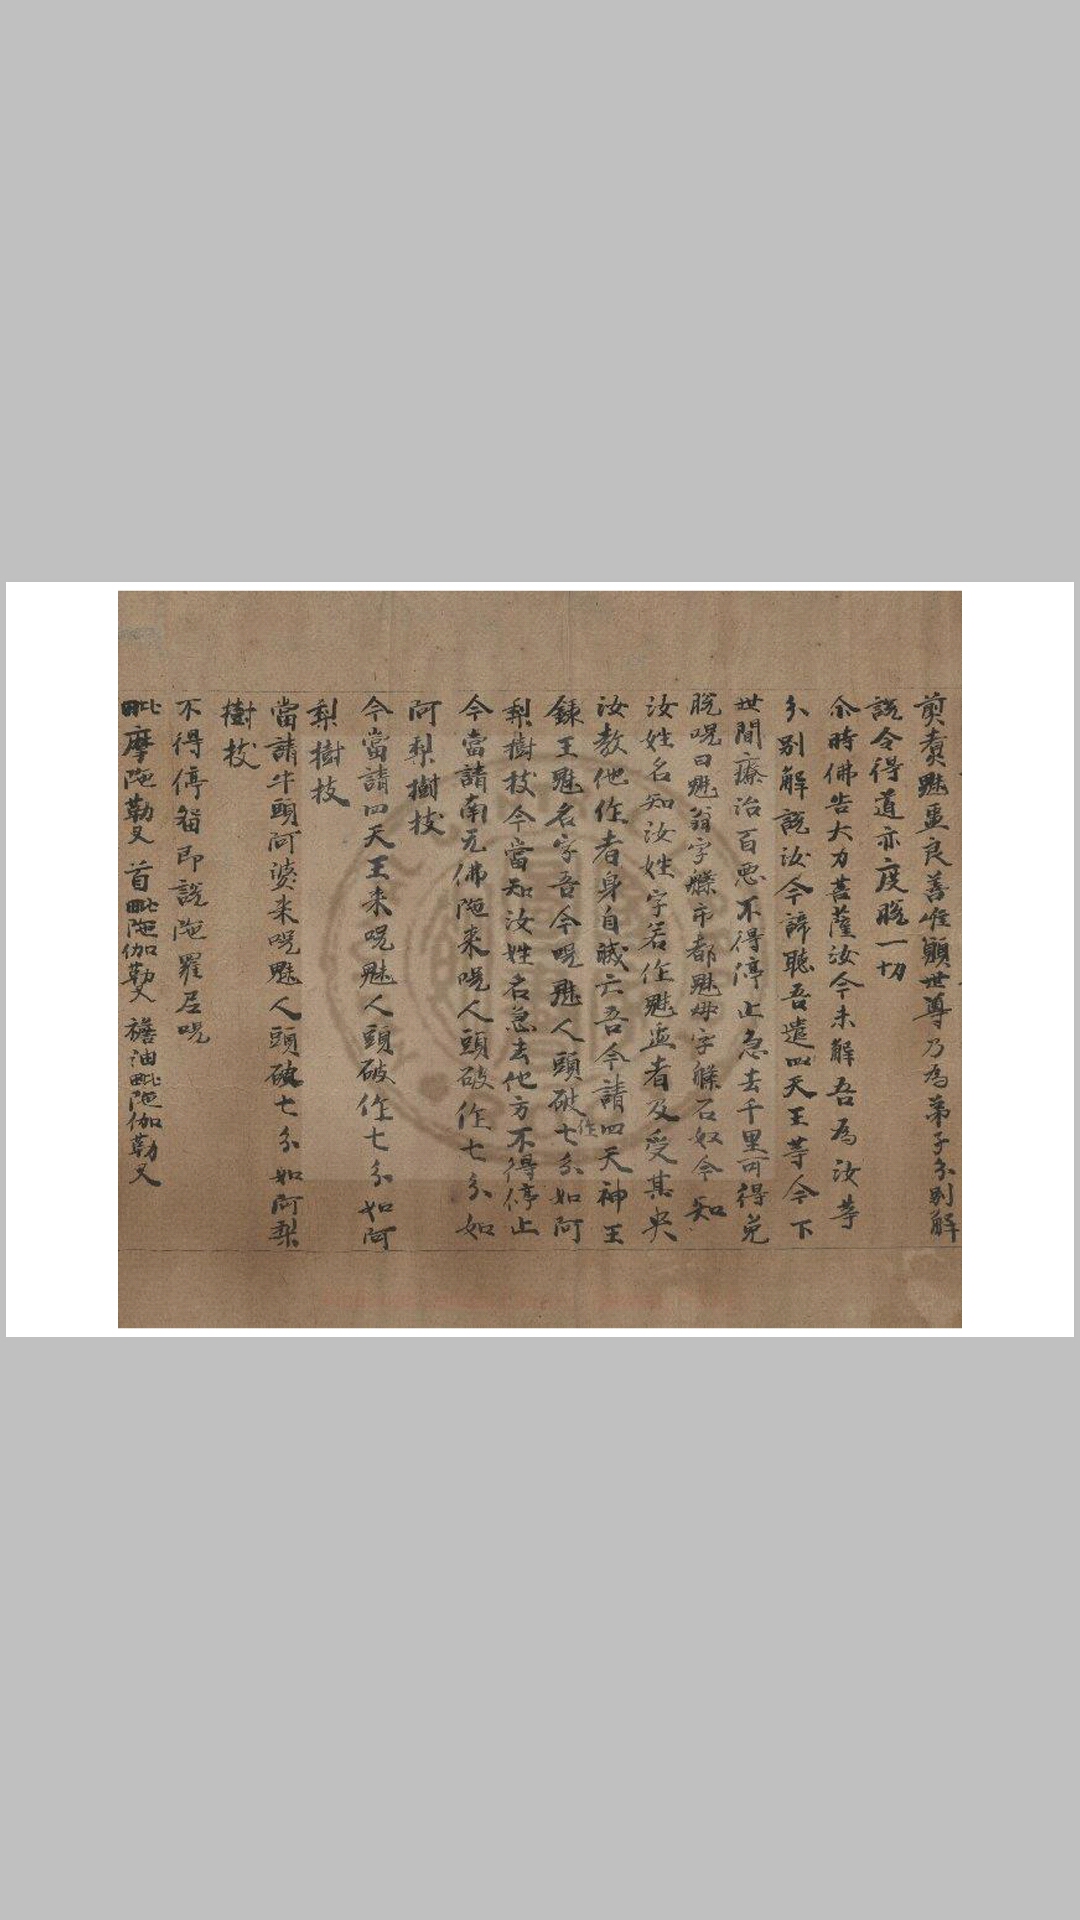 剪責魅蠱良善唯願世尊乃為弟子分別解
說令得道亦度脫一切
尒時佛告大力菩薩汝今未解吾為汝等
分別解說汝今諦聽吾遣四天王等令下
世間療治百惡不得停止急去千里可得免
脫呪曰魅翁字䗍市都魅母字䗍石奴今知
汝姓名知汝姓字若作魅蠱者及受其殃
汝教他作者身自滅亡吾今請四天神王
錄王魅名字吾今呪魅人頭破作七分如阿
梨樹枝今當知汝姓名急去他方不得停止
今當請南无佛陁来呪人頭破作七分如
阿梨樹枝
今當請四天王来呪魅人頭破作七分如阿
梨樹枝
當請牛頭阿婆来呪魅人頭破七分如阿梨
樹枝
不得停留即說陁羅尼呪
毗摩陁勒叉 首毗陁伽勒叉 襜油毗陁伽勒叉